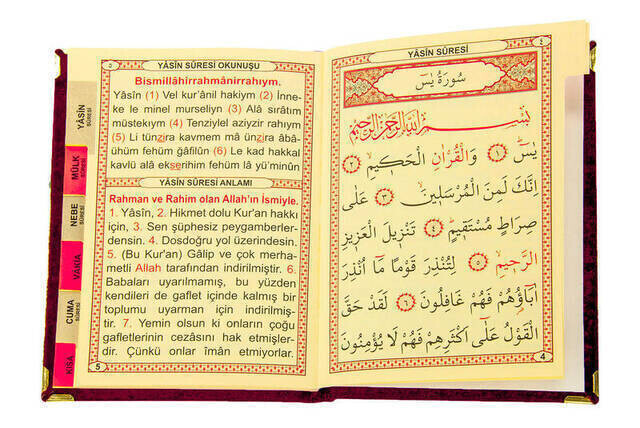 ٥
YÂSÎN SÛRESİ OKUNUŞU
Bismillâhirrahmânirrahıym.
Yâsîn (1) Vel kur'ânil hakiym (2) İnne-
ke le minel murseliyn (3) Alâ sırâtım
müstekıym (4) Tenziylel aziyzir rahıym
(5) Li tünzira kavmem mâ ünzira âbâ-
ühüm fehüm ğâfilûn (6) Le kad hakkal
kavlü alâ ekserihim fehüm lâ yü'minûn
YÂSÎN SÛRESİ ANLAMI
Rahman ve Rahim olan Allah'ın İsmiyle.
1. Yâsîn, 2. Hikmet dolu Kur'an hakkı
için, 3. Sen şüphesiz peygamberler-
densin. 4. Dosdoğru yol üzerindesin.
5. (Bu Kur'an) Gâlip ve çok merha-
metli Allah tarafından indirilmiştir. 6.
Babaları uyarılmamış, bu yüzden
kendileri de gaflet içinde kalmış bir
toplumu uyarman için indirilmiş-
tir. 7. Yemin olsun ki onların çoğu
gafletlerinin cezasını hak etmişler-
dir. Çünkü onlar îmân etmiyorlar.
5
YÂSÎN
SÛRESİ
MÜLK
SÛRESİ
NEBE
SÛRESİ
VÂKIA
CUMA
SÛRESİ
KISA
YÂSÎN SÛRESİ
٤
سُورَةُ يٰسٓ
بِسْمِ اللّٰهِ الرَّحْمٰنِ الرَّحِيمِ
يٰسٓ ﴿١﴾ وَالْقُرْاٰنِ الْحَكِيمِ ﴿٢﴾
اِنَّكَ لَمِنَ الْمُرْسَلِينَ ﴿٣﴾ عَلٰى
صِرَاطٍ مُسْتَقِيمٍ ﴿٤﴾ تَنْزِيلَ الْعَزِيزِ
الرَّحِيمِ ﴿٥﴾ لِتُنْذِرَ قَوْمًا مَٓا اُنْذِرَ
اٰبَٓاؤُهُمْ فَهُمْ غَافِلُونَ ﴿٦﴾ لَقَدْ حَقَّ
الْقَوْلُ عَلٰٓى اَكْثَرِهِمْ فَهُمْ لَا يُؤْمِنُونَ
4